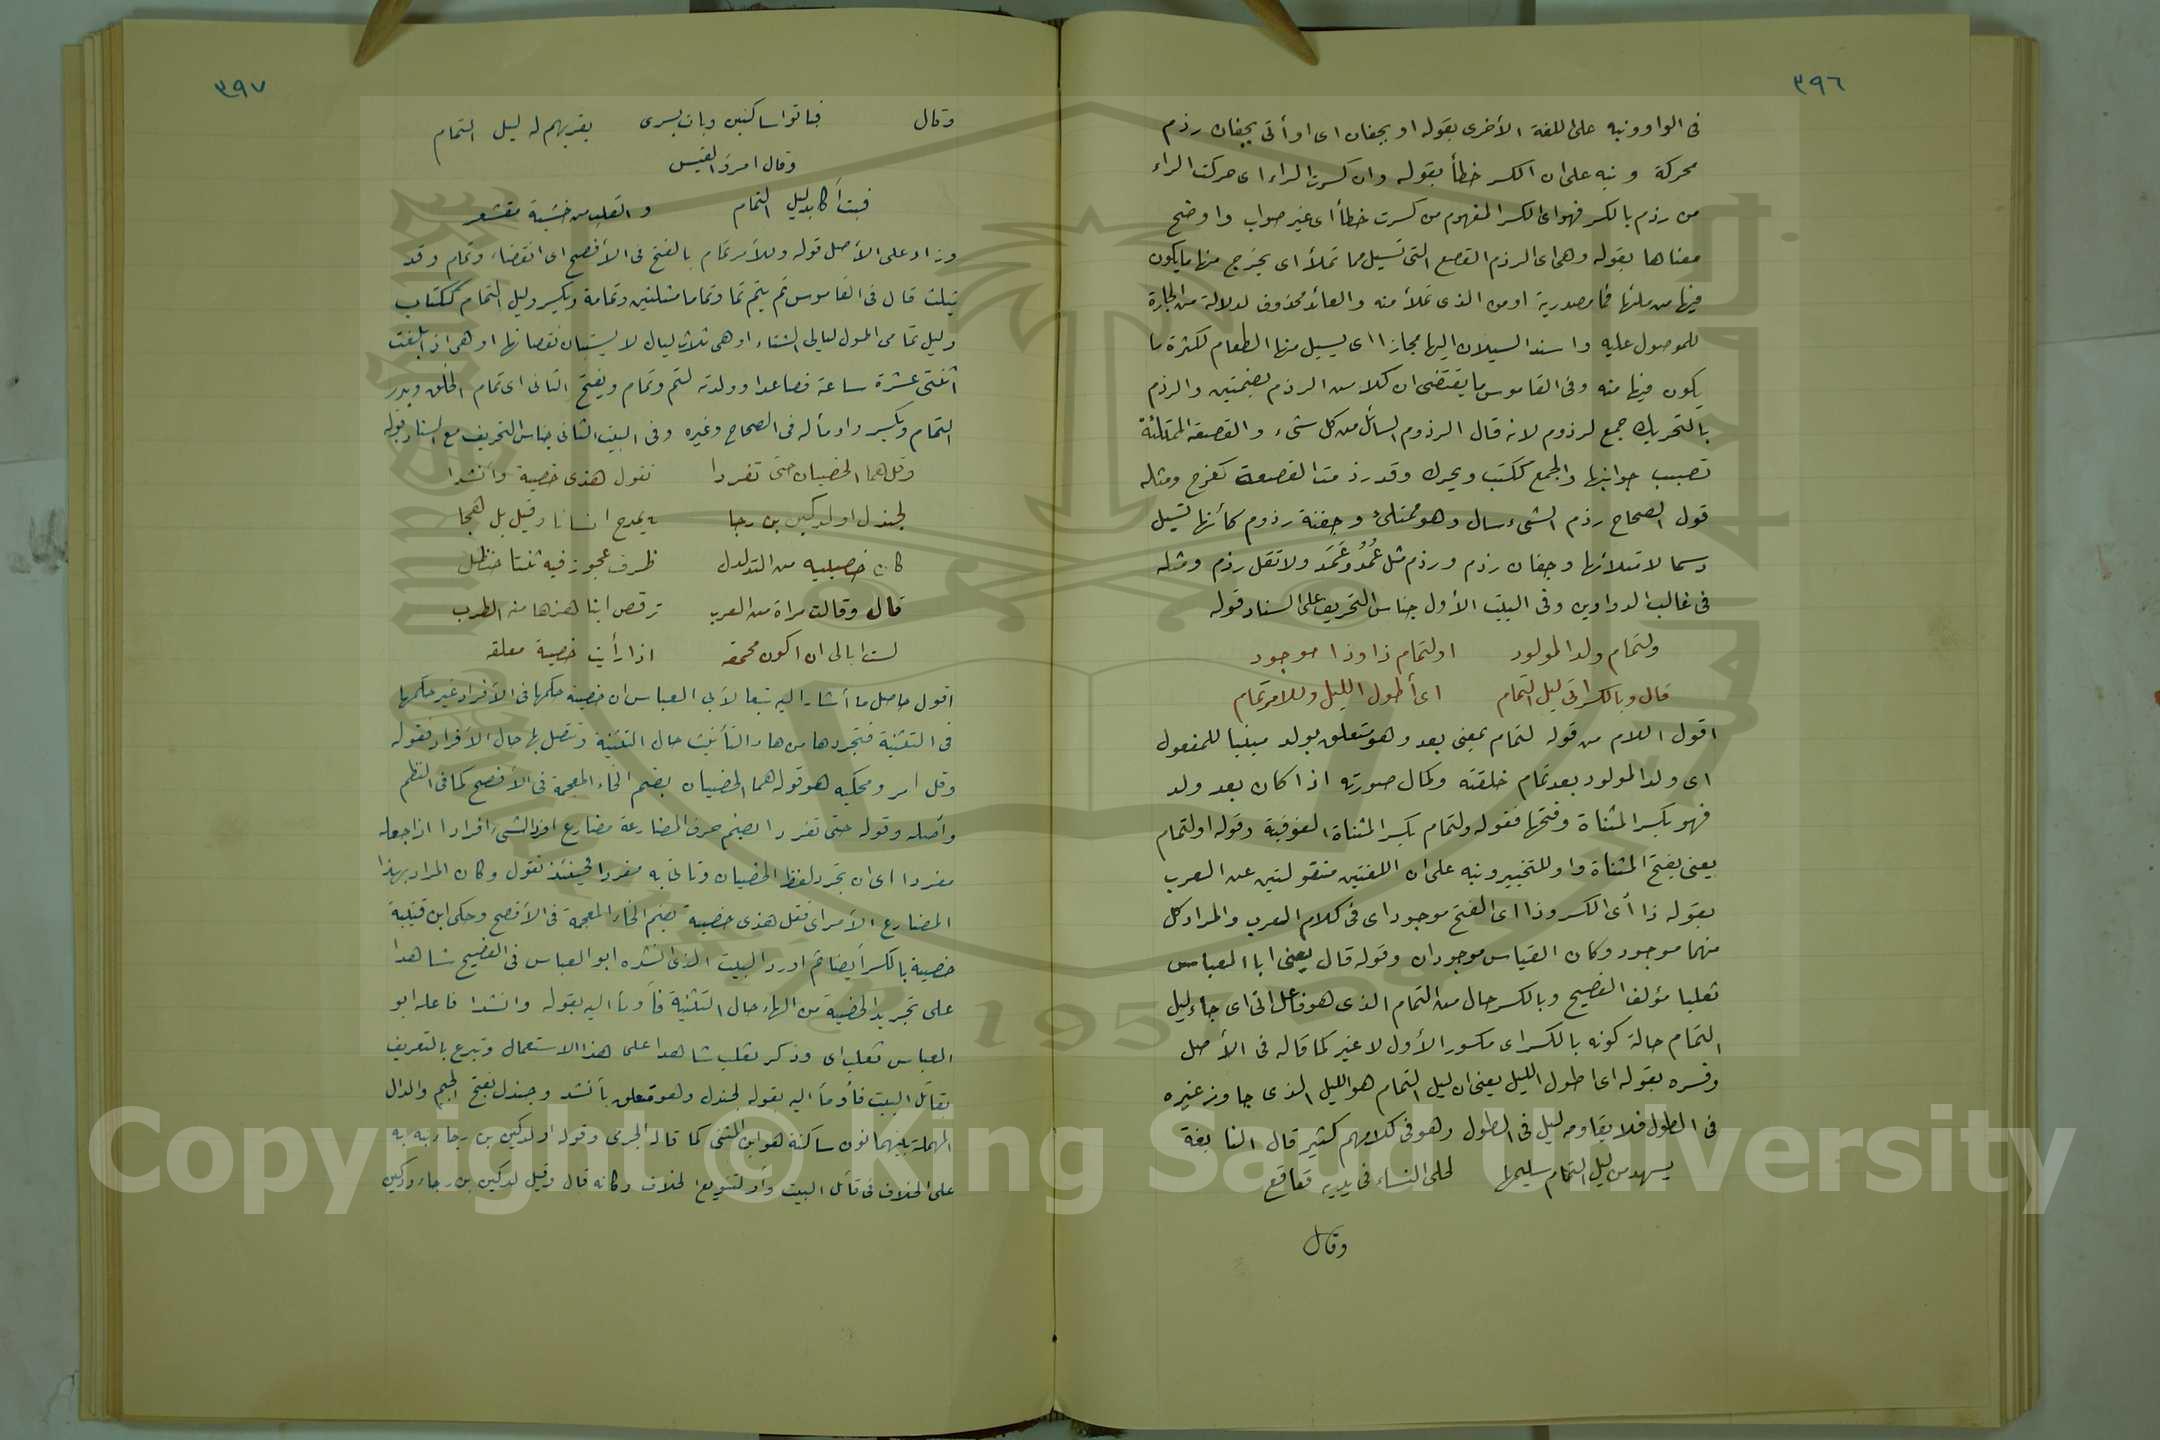 ٣٩٦
فى الواو ونبه على اللغة الأخرى بقوله او بجفان اى او أتى بجفان رذم
محركة ونبه على ان الكسر خطأ بقوله وان كسرت الراء اى حركت الراء
من رذم بالكسر فهو اى الكسر المفهوم من كسرت خطأ اى غير صواب واوضح
معناها بقوله وهى اى الرذم القصع التى تسيل مما تملأ اى يخرج منها ما يكون
فيها من ملئها فما مصدرية او من الذى تملأ منه والعائد محذوف لدلالة من الجارة
للموصول عليه واسند السيلان اليها مجازا اى يسيل منها الطعام لكثرة ما
يكون فيها منه وفى القاموس ما يقتضى ان كلا من الرذم بضمتين والرذم
بالتحريك جمع لرذوم لانه قال الرذوم السائل من كل شىء والقصعة الممتلئة
تصبب جوانبها والجمع ككتب ويحرك وقد رذمت القصعة كفرح ومثله
قول الصحاح رذم الشىء سال وهو ممتلئ وجفنة رذوم كأنها تسيل
دسما لامتلائها وجفان رذم ورذم مثل عُمُد وعَمَد ولا تقل رذم ومثله
فى غالب الدواوين وفى البيت الأول جناس التحريف على السناد قوله
ولتمام ولد المولود او لتمام ذا وذا موجود
قال وبالكسر اتى ليل التمام اى أطول الليل وللامر تمام
اقول اللام من قوله لتمام بمعنى بعد وهو متعلق بولد مبنيا للمفعول
اى ولد المولود بعد تمام خلقته وكمال صورته اذا كان بعد ولد
فهو بكسر المثناة وفتحها فقوله ولتمام بكسر المثناة الفوقية وقوله او لتمام
يعنى بفتح المثناة واو للتخيير ونبه على ان اللغتين منقولتين عن العرب
بقوله ذا أى الكسر وذا اى الفتح موجود اى فى كلام العرب والمراد كل
منهما موجود وكان القياس موجودان وقوله قال يعنى ابا العباس
ثعلبا مؤلف الفصيح وبالكسر حال من التمام الذى هو فاعل اتى اى جاء ليل
التمام حالة كونه بالكسر اى مكسور الأول لا غير كما قاله فى الأصل
وفسره بقوله اى اطول الليل يعنى ان ليل التمام هو الليل الذى جاوز غيره
فى الطول فلا يقاومه ليل فى الطول وهو فى كلامهم كثير قال النابغة
يسهد من ليل التمام سليمها لحلى النساء فى يديه قعاقع
وقال
٣٩٧
وقال فباتوا ساكنين وبات يسرى يقربهم له ليل التمام
وقال امرؤ القيس
فبت أكابد ليل التمام والقلب من خشية مقشعر
وزاد على الأصل قوله وللأمر تمام بالفتح فى الأفصح اى انقضاء وتمام وقد
يثلث قال فى القاموس تم يتم تما وتماما مثلثين وتمامة ويكسر وليل التمام ككتاب
وليل تمامى اطول ليالى الشتاء او هى ثلاث ليال لا يستبان نقصانها او هى اذا بلغت
اثنتى عشرة ساعة فصاعدا وولدته لتم وتمام ويفتح الثانى اى تمام الخلق وبدر
التمام ويكسر واومأ له فى الصحاح وغيره وفى البيت الثانى جناس التحريف مع السناد قوله
وقل هما الخصيان حتى تفردا تقول هذى خصية وانشدا
لجندل او لدكين بن رجا يمدح انسانا وقيل بل هجا
كان خصييه من التدلدل ظرف عجوز فيه ثنتا حنظل
قال وقالت مرأة من العرب ترقص ابنا هزها منه الطرب
لست ابالى ان اكون محمقه اذا رأيت خصية معلقه
اقول حاصل ما أشار اليه تبعا لأبى العباس ان خصية حكمها فى الأفراد غير حكمها
فى التثنية فتجردها من هاء التأنيث حال التثنية وتتصل بها حال الأفراد فقوله
وقل امر ومحكيه هو قوله هما الخصيان بضم الخاء المعجمة فى الأفصح كما فى النظم
وأصله وقوله حتى تفردا بضم حرف المضارعة مضارع افرد الشىء افرادا اذا جعله
مفردا اى ان تجرد لفظ الخصيان وتأتى به مفردا فحينئذ تقول وكان المراد بهذا
المضارع الأمر اى فقل هذى خصية بضم الخاء المعجمة فى الأفصح وحكى ابن قتيبة
خصية بالكسر أيضا ثم اورد البيت الذى انشده ابو العباس فى الفصيح شاهدا
على تجريد الخصية من الهاء حال التثنية فأومأ اليه بقوله وانشدا فاعله ابو
العباس ثعلب اى وذكر ثعلب شاهدا على هذا الاستعمال وتبرع بالتعريف
بقائل البيت فأومأ اليه بقوله لجندل وهو متعلق بأنشد وجندل بفتح الجيم والدال
المهملة بينهما نون ساكنة هو ابن المثنى كما قاله الجرمى وقوله او لدكين بن رجا نبه به
على الخلاف فى قائل البيت وأو لتنويع الخلاف وكانه قال وقيل لدكين بن رجاء ودكين
Copyright © King Saud University
1957